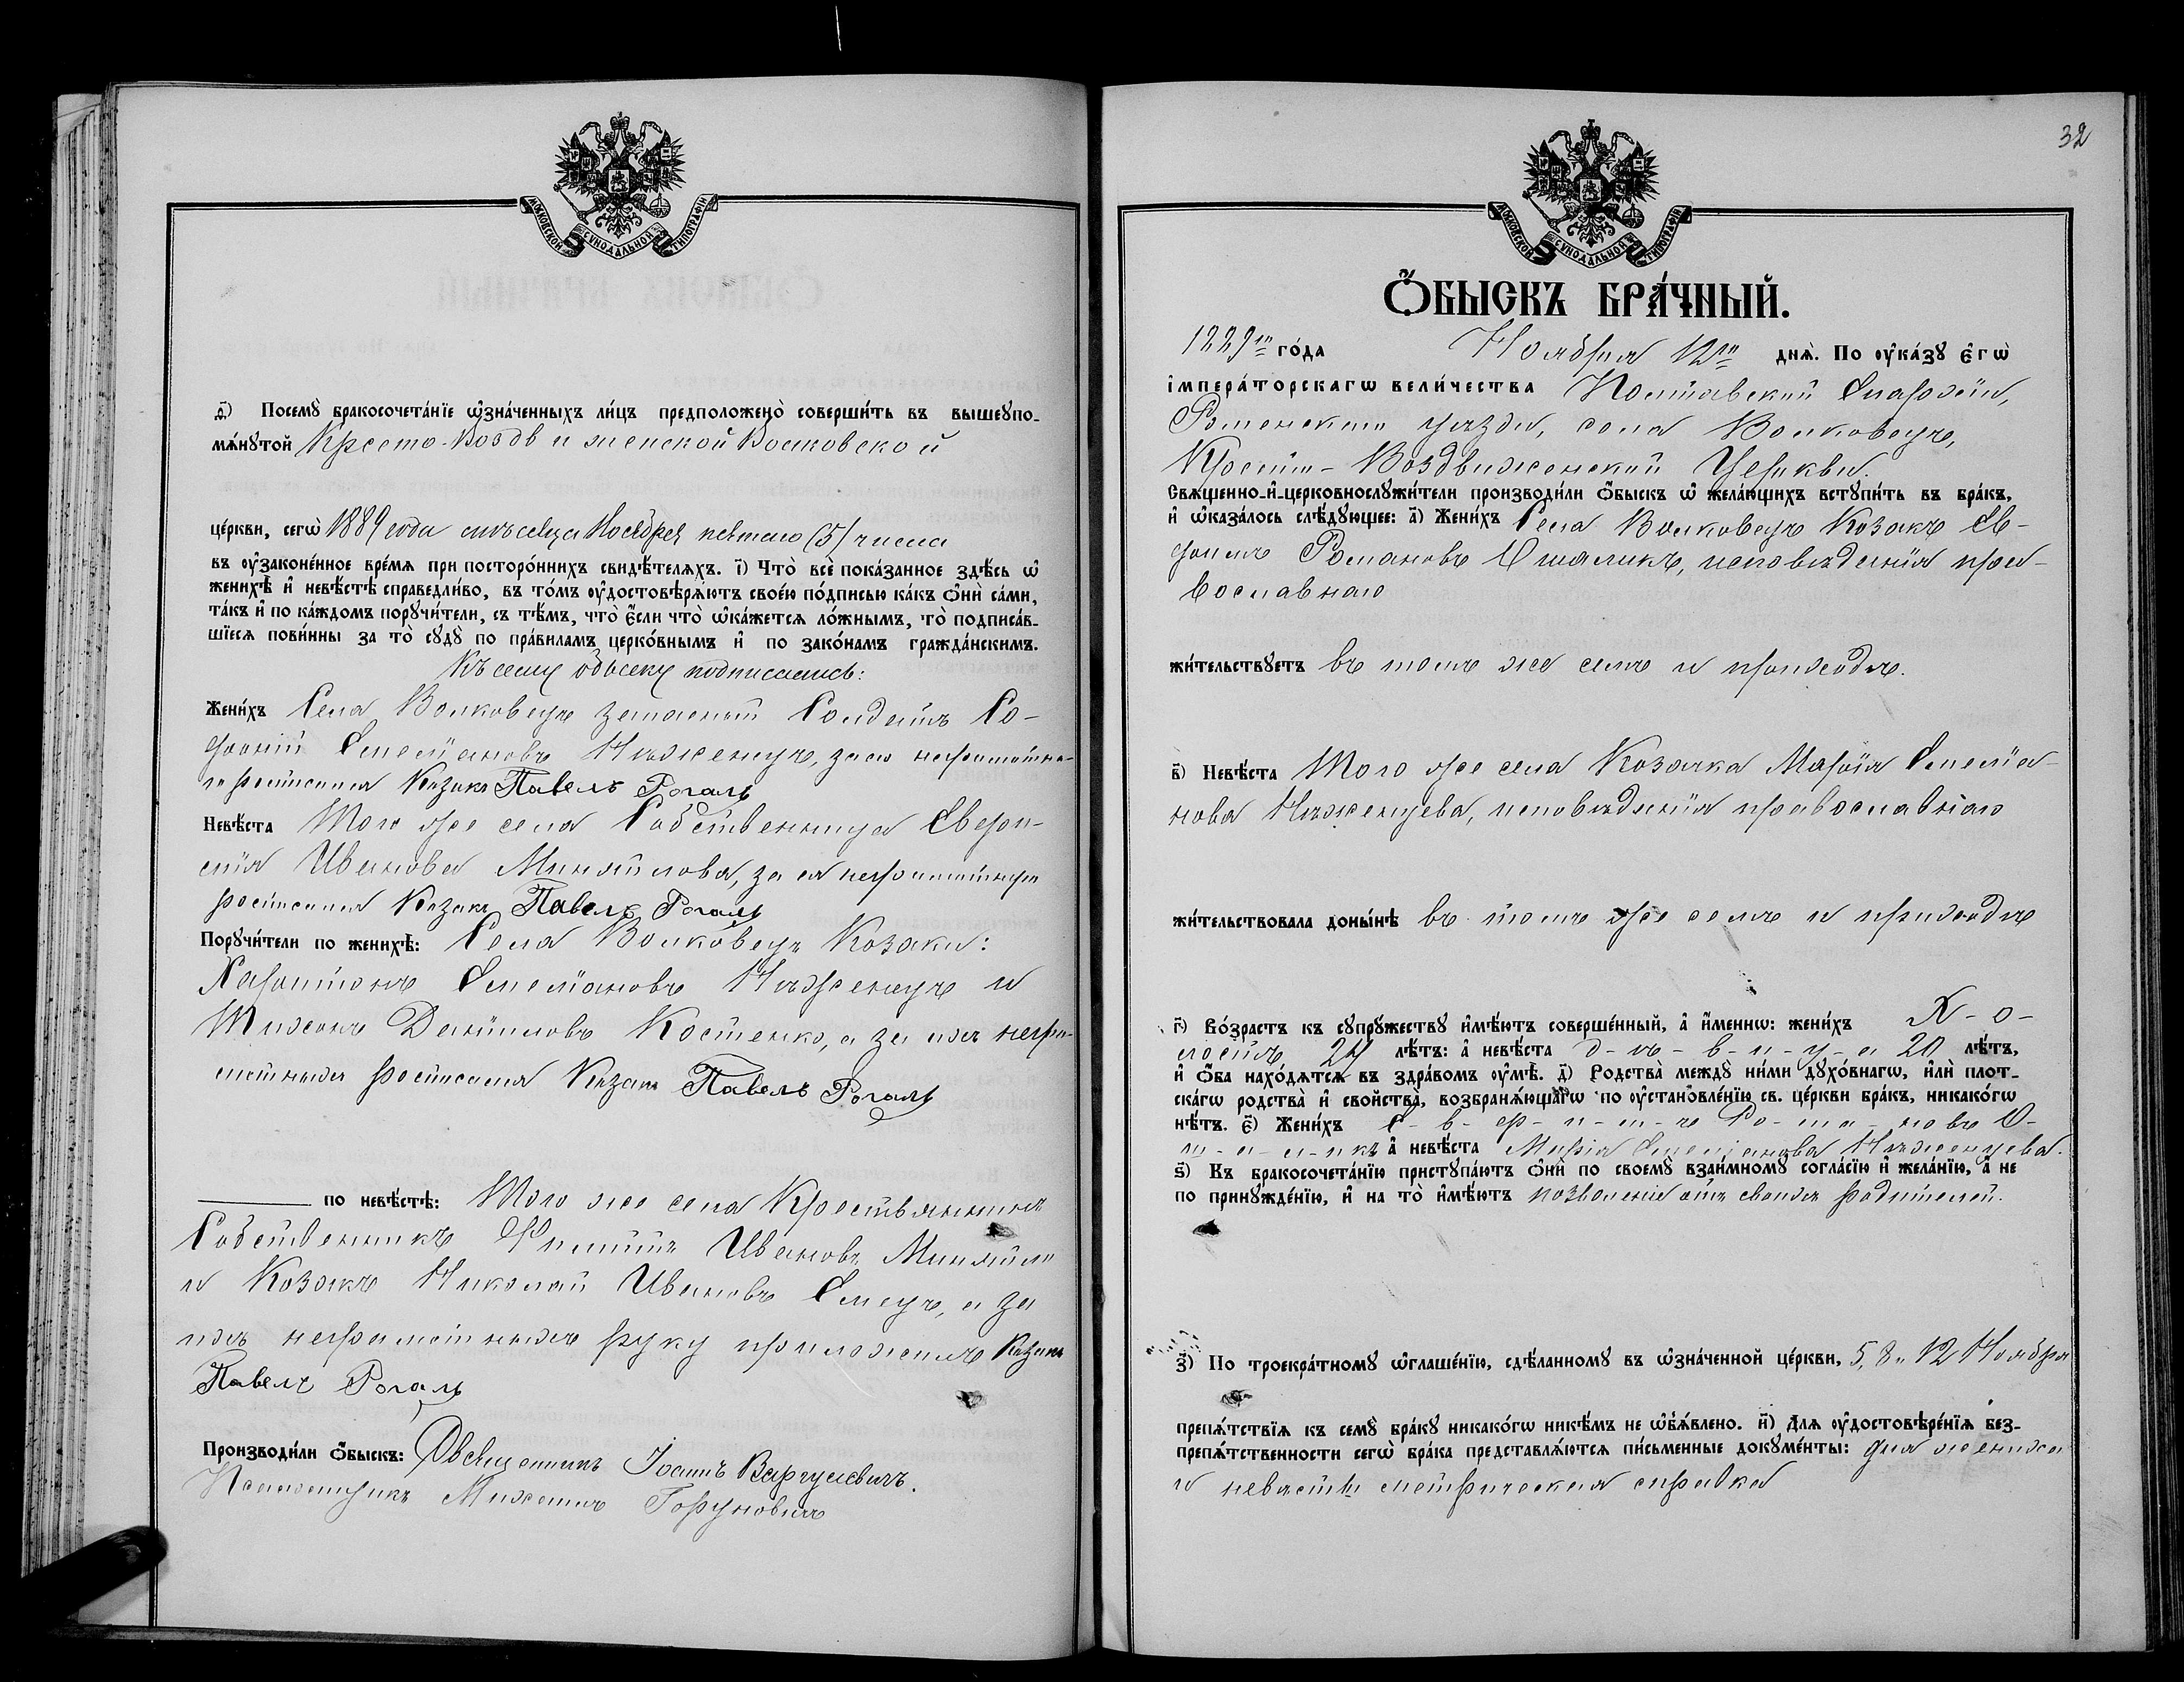 МОСКОВСКОЙ СѴНОДАЛЬНОЙ ТИПОГРАФІИ
д҃і) Посемꙋ̀ бракосочета́нїе ѡ҆зна́ченныхъ ли́цъ предположено̀ соверши́ть въ вышеꙋпо-
мѧ́нꙋтой Кресто-Воздвиженской Волковской
це́ркви, сегѡ̀ 1889 года мѣсяца Ноября пятаго (5) числа
въ ᲂу҆зако́ненное вре́мѧ при посторо́ннихъ свидѣ́телѧхъ. і҃) Что̀ всѐ пока́занное здѣ́сь ѡ҆
женихѣ̀ и҆ невѣ́стѣ справедли́во, въ то́мъ ᲂу҆достовѣрѧ́ютъ свое́ю по́дписью ка́къ ѻ҆нѝ са́ми,
та́къ и҆ по ка́ждомъ порꙋчи́тели, съ тѣ́мъ, что̀ є҆́сли что̀ ѡ҆ка́жетсѧ ло́жнымъ, то̀ подписа́в-
шїесѧ пови́нны за то̀ сꙋдꙋ̀ по пра́виламъ церко́внымъ и҆ по зако́намъ гражда́нскимъ.
Къ сему обыску подписались:
Жени́хъ Села Волковецъ запасный Солдатъ Со-
фоній Стефановъ Нѣженецъ, за его неграмотна-
го росписался Казакъ Павелъ Рогаль
Невѣ́ста Того же села Собственница Евфро-
сія Иванова Миняйлова, за ея неграмотную
росписался Казакъ Павелъ Рогаль
Порꙋчи́тели по женихѣ̀: Села Волковецъ Козаки:
Харитонъ Стефановъ Нѣженецъ и
Тихонъ Даніиловъ Костенко, а за ихъ негра-
мотныхъ росписался Казакъ Павелъ Рогаль
по невѣ́стѣ: Того же села Крестьянинъ
Собственникъ Филиппъ Ивановъ Миняйло
и Козакъ Николай Ивановъ, а за
ихъ неграмотныхъ руку приложилъ Казакъ
Павелъ Рогаль
Производи́ли ѻ҆́быскъ: Священникъ Іоаннъ Варгулевичъ.
Псаломщикъ Михаилъ Горуновичъ
32
МОСКОВСКОЙ СѴНОДАЛЬНОЙ ТИПОГРАФІИ
Ѻ҆́БЫСКЪ БРА́ЧНЫЙ.
1889го го́да Ноября 12го днѧ̀. По ᲂу҆ка́зꙋ є҆гѡ̀
і҆мпера́торскагѡ вели́чества Полтавской Епархіи,
Роменскаго уѣзда, села Волковецъ,
Кресто-Воздвиженской Церкви.
Свѧщенно-и҆-церковнослꙋжи́тели производи́ли ѻ҆́быскъ ѡ҆ жела́ющихъ встꙋпи́ть въ бра́къ,
и҆ ѡ҆каза́лось слѣ́дꙋющее: а҃) Жени́хъ Села Волковецъ Козакъ Ев-
фимъ Романовъ Ошаликъ, исповѣданія пра-
вославнаго
жи́тельствꙋетъ въ томъ же селѣ и приходѣ.
в҃) Невѣ́ста Того же села Козачка Марія Стефа-
нова Нѣженцева, исповѣданія православнаго
жи́тельствовала доны́нѣ въ томъ же селѣ и приходѣ
г҃) Во́зрастъ къ сꙋпрꙋ́жествꙋ и҆мѣ́ютъ соверше́нный, а҆ и҆́меннѡ: жени́хъ Х-о-
лостъ 24 лѣ́тъ: а҆ невѣ́ста д-ѣ-в-и-ц-а 20 лѣ́тъ,
и҆ ѻ҆́ба нахо́дѧтсѧ въ здра́вомъ ᲂу҆мѣ̀. д҃) Родства̀ междꙋ̀ ни́ми дꙋхо́внагѡ, и҆лѝ плот-
ска́гѡ родства̀ и҆ сво́йства, возбранѧ́ющагѡ по ᲂу҆становле́нїю св. це́ркви бра́къ, никако́гѡ
нѣ́тъ. є҃) Жени́хъ Е-в-ф-и-м-ъ Ро-ма-новъ О-
ш-а-л-икъ а҆ невѣ́ста Марія Стефанова Нѣженцева.
ѕ҃) Къ бракосочета́нїю пристꙋпа́ютъ ѻ҆нѝ по своемꙋ̀ взаи́мномꙋ согла́сїю и҆ жела́нїю, а҆ не
по принꙋжде́нїю, и҆ на то̀ и҆мѣ́ютъ позволеніе отъ своихъ родителей.
з҃) По троекра́тномꙋ ѡ҆глаше́нїю, сдѣ́ланномꙋ въ ѡ҆зна́ченной це́ркви, 5, 8 и 12 Ноября
препѧ́тствїѧ къ семꙋ̀ бра́кꙋ никако́гѡ никѣ́мъ не ѡ҆б̾ѧ́влено. и҃) Длѧ ᲂу҆достовѣре́нїѧ без-
препѧ́тственности сегѡ̀ бра́ка представлѧ́ютсѧ пи́сьменные докꙋме́нты: для жениха
и невѣсты метрическая справка